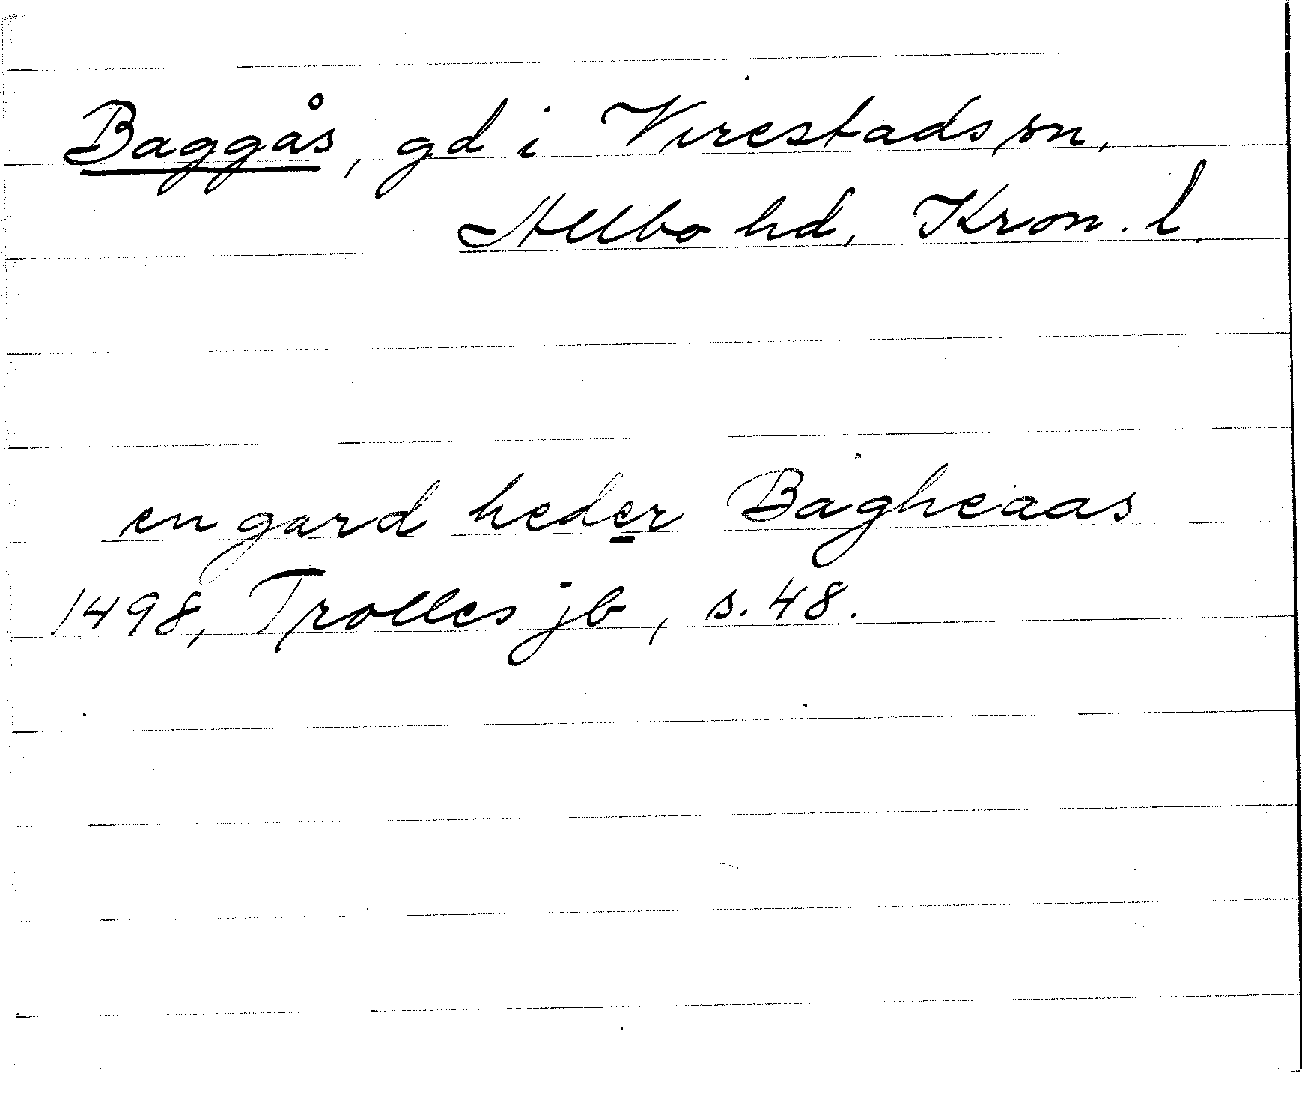 Baggås, gd i Virestads sn,
Allbo hd, Kron. l.
en gard heder Bagheaas
1498, Trolles jb, s. 48.